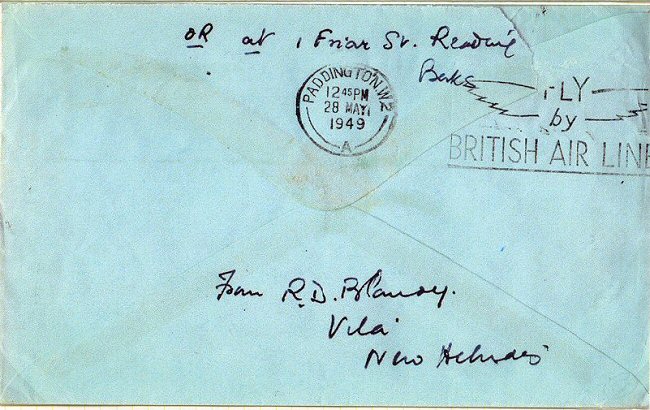 OR at 1 Friar St. Reading
Berks
PADDINGTON W2
12 45 PM
28 MAY
1949
A
FLY
by
BRITISH AIR LINE
From R.D. Blandy.
Vila
New Hebrides